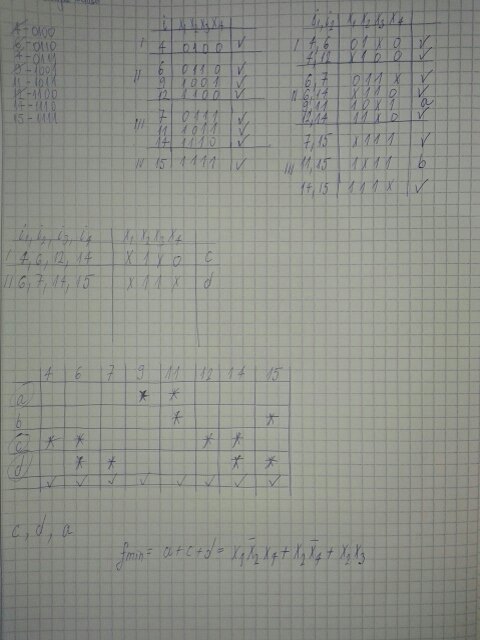 4-0100
6-0110
7-0111
9-1001
11-1011
12-1100
14-1110
15-1111
i x₁ x₂ x₃ x₄
I 4 0 1 0 0 ✓
II 6 0 1 1 0 ✓
9 1 0 0 1 ✓
12 1 1 0 0 ✓
III 7 0 1 1 1 ✓
11 1 0 1 1 ✓
14 1 1 1 0 ✓
IV 15 1 1 1 1 ✓
i₁, i₂ x₁ x₂ x₃ x₄
I 4, 6 0 1 x 0 ✓
4, 12 x 1 0 0 ✓
6, 7 0 1 1 x ✓
II 6, 14 x 1 1 0 ✓
9, 11 1 0 x 1 a
12, 14 1 1 x 0 ✓
7, 15 x 1 1 1 ✓
III 11, 15 1 x 1 1 b
14, 15 1 1 1 x ✓
i₁, i₂, i₃, i₄ x₁ x₂ x₃ x₄
I 4, 6, 12, 14 x 1 x 0 c
II 6, 7, 14, 15 x 1 1 x d
4 6 7 9 11 12 14 15
a * *
b * *
c * * * *
d * * * *
✓ ✓ ✓ ✓ ✓ ✓ ✓ ✓
c, d, a
fmin = a + c + d = x₁x̄₂x₄ + x₂x̄₄ + x₂x₃